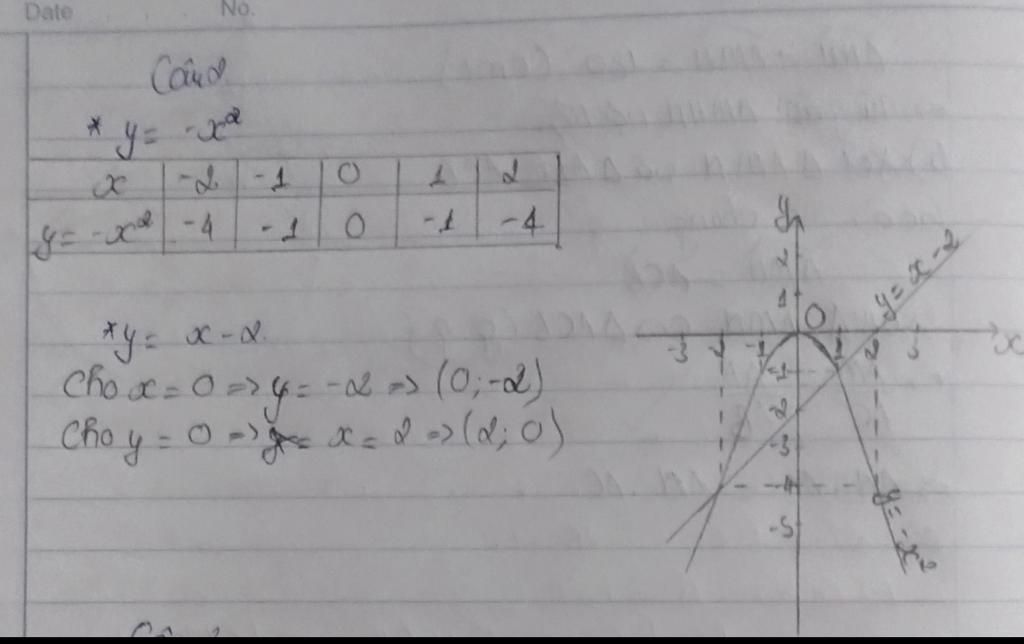 Date No.
Câu 2
* y = -x²
x -2 -1 0 1 2
y = -x² -4 -1 0 -1 -4
* y = x - 2
Cho x = 0 => y = -2 => (0; -2)
Cho y = 0 => x = 2 => (2; 0)
y
2
1
O
y = x - 2
-3 -2 -1 1 2 3 x
-1
-2
-3
-4
-5
y = -x²